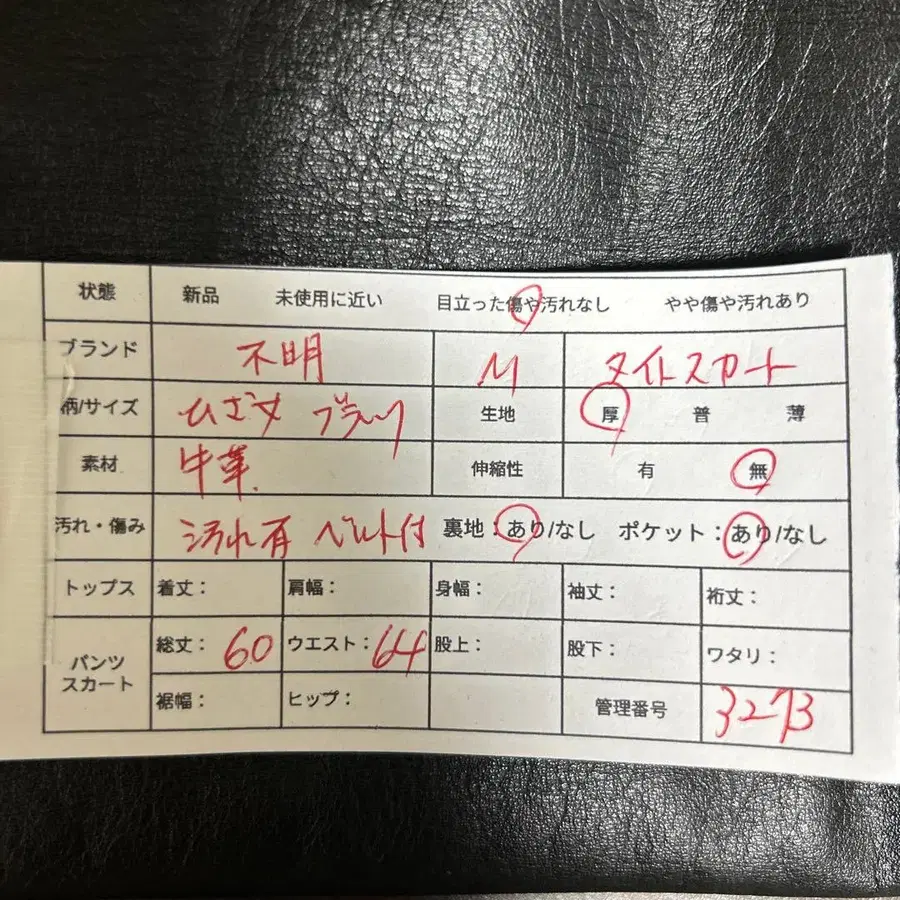 状態 新品 未使用に近い 目立った傷や汚れなし やや傷や汚れあり
ブランド 不明 M タイトスカート
柄/サイズ ひざ丈 ブラック 生地 厚 普 薄
素材 牛革 伸縮性 有 無
汚れ・傷み 汚れ有 ベルト付 裏地：あり/なし ポケット：あり/なし
トップス 着丈： 肩幅： 身幅： 袖丈： 裄丈：
パンツ スカート 総丈：60 ウエスト：64 股上： 股下： ワタリ：
裾幅： ヒップ： 管理番号 3273